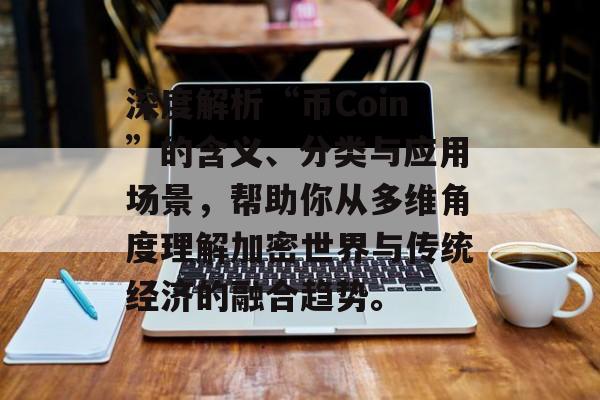 深度解析“币Coin
”的含义、分类与应用
场景，帮助你从多维角
度理解加密世界与传统
经济的融合趋势。